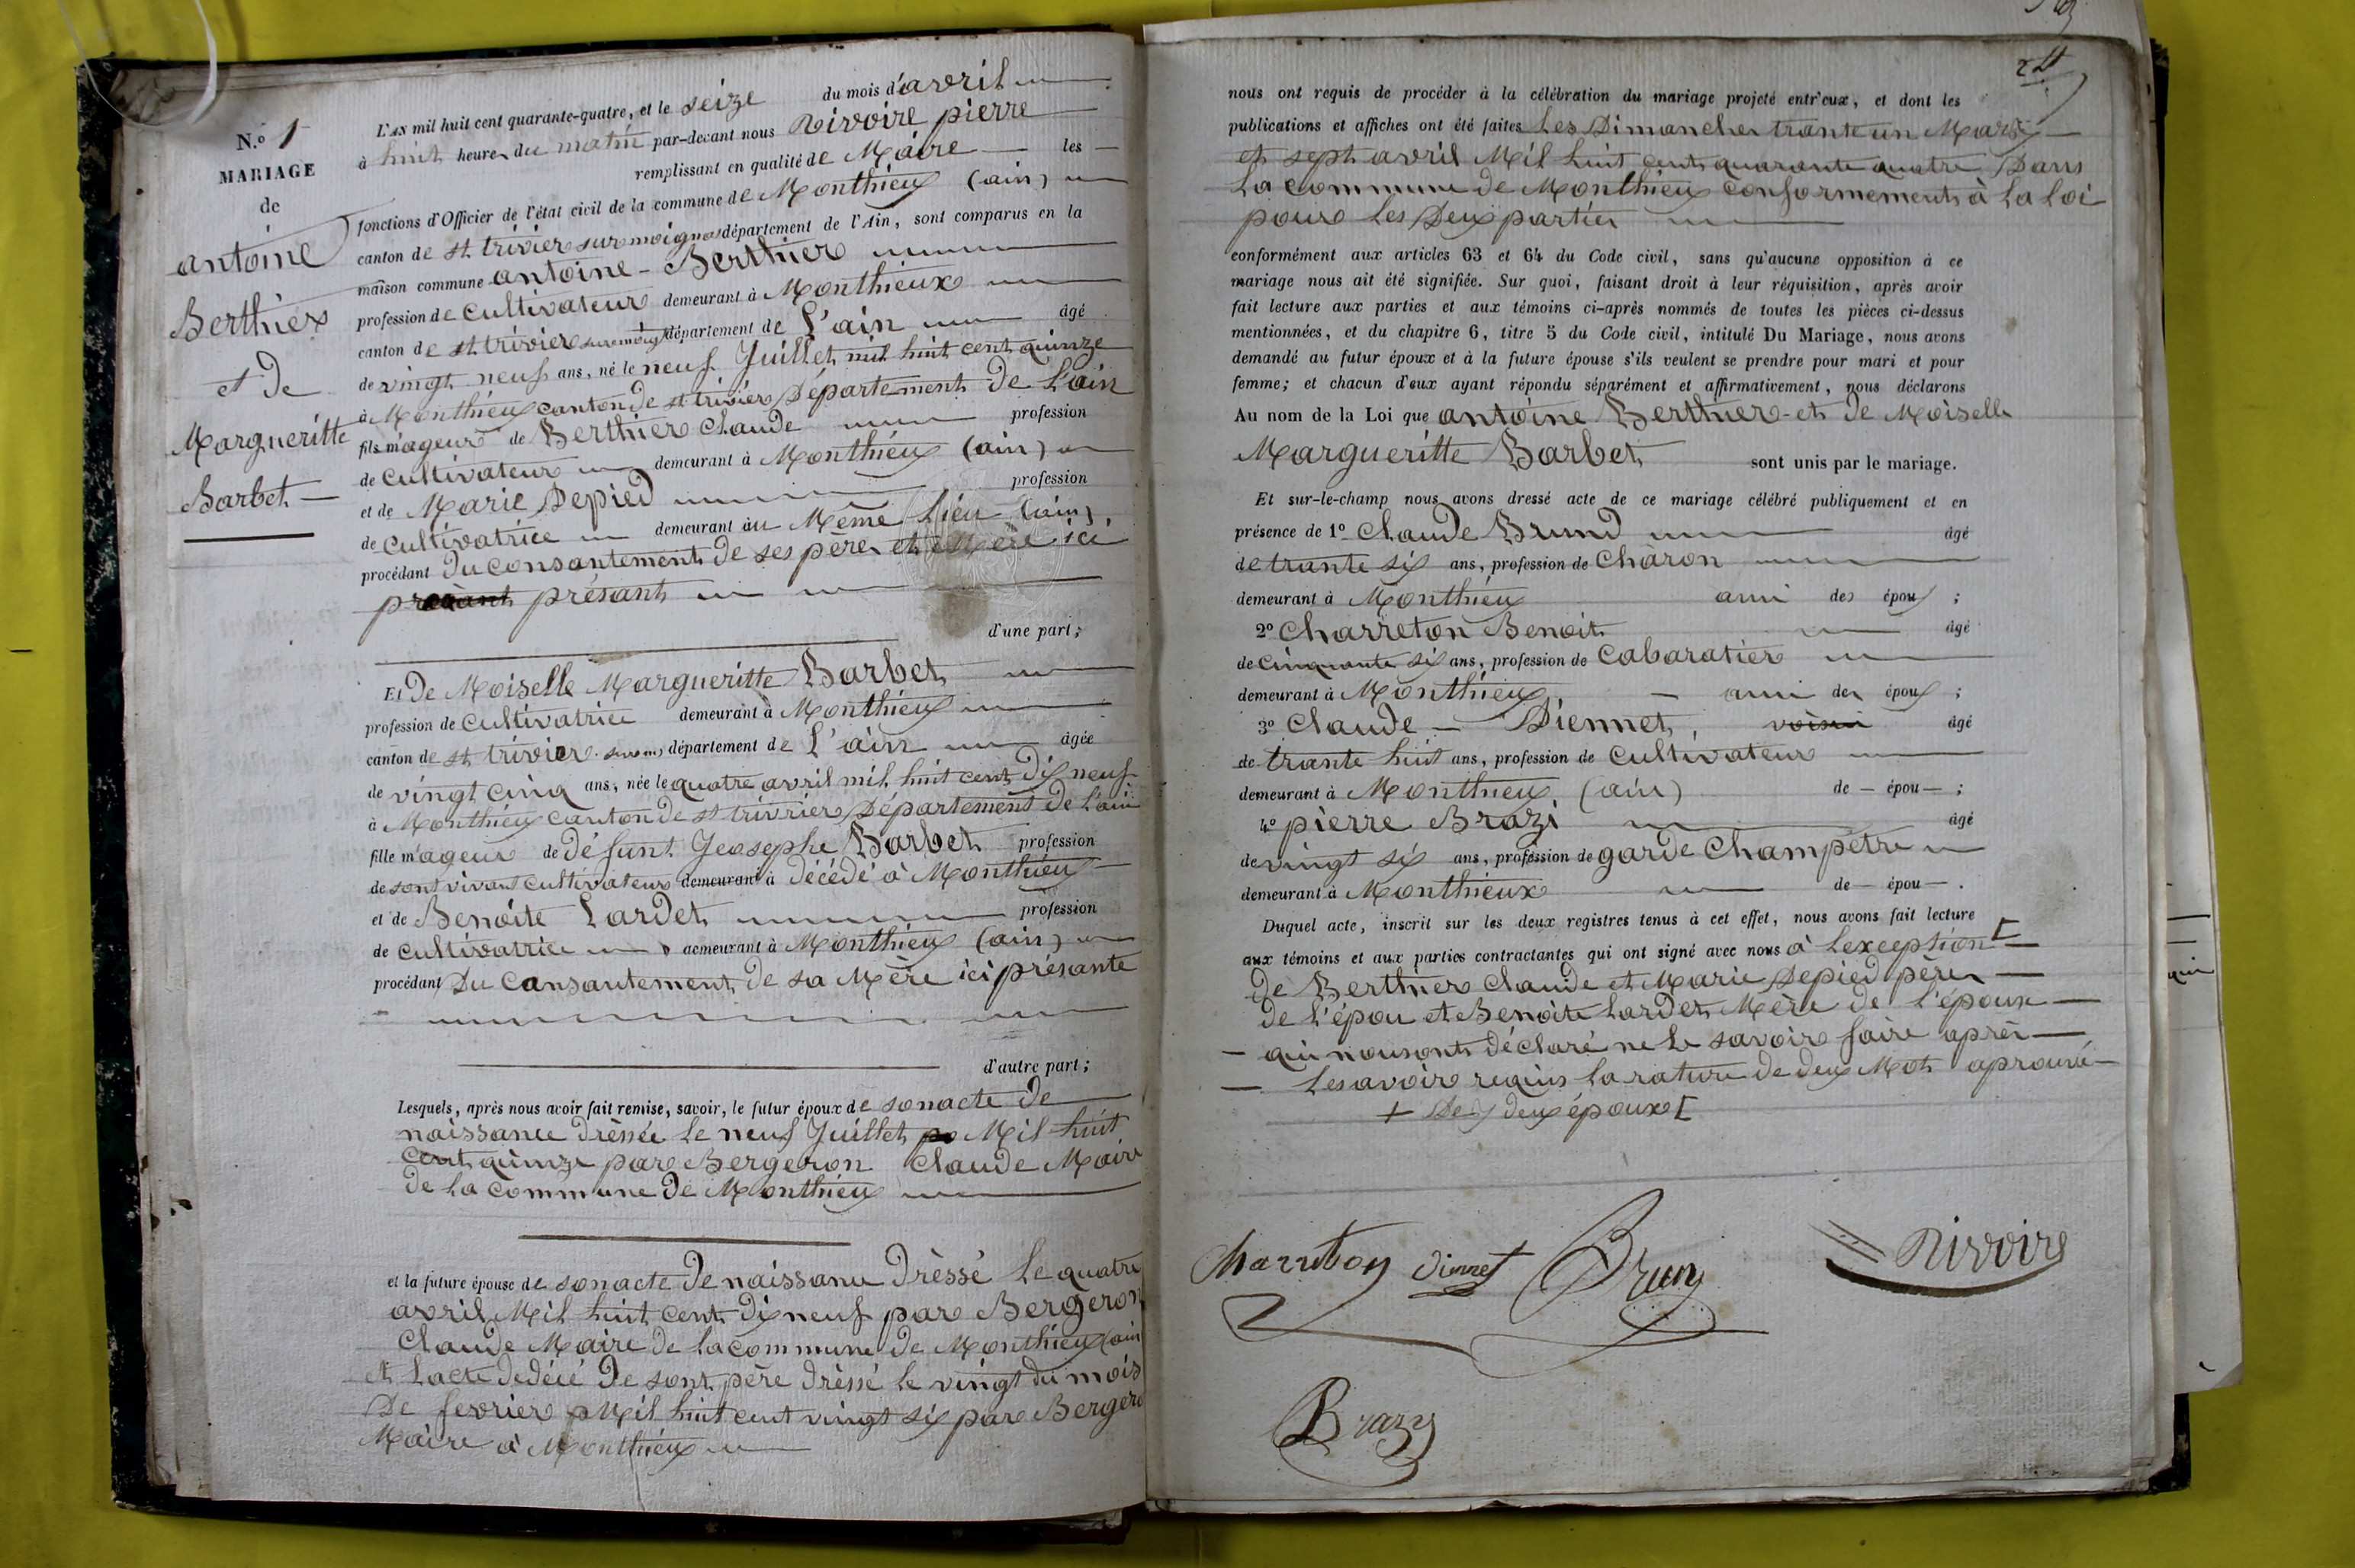 N.º 1
MARIAGE
de
antoine
Berthier
et De
Margueritte
Barbet
L'AN mil huit cent quarante-quatre, et le seize du mois d'avril
à huit heures du matin par-devant nous Rivoire pierre
remplissant en qualité de Maire les
fonctions d'Officier de l'état civil de la commune de Monthieux (ain)
canton de st. trivier sur moignas département de l'Ain, sont comparus en la
maison commune antoine - Berthier
profession de cultivateur demeurant à Monthieux
canton de st trivier sur moig département de L'ain âgé
de vingt neuf ans, né le neuf Juillet mil huit cent quinze
à Monthieux canton de st trivier Département De L'ain
fils mageur de Berthier Claude profession
de cultivateur demeurant à Monthieux (ain)
et de Marie Depied profession
de cultivatrice demeurant au Même Lieu (ain)
procédant Du consantement De ses père et Mère ici
présant
d'une part;
Et De Moiselle Margueritte Barbet
profession de cultivatrice demeurant à Monthieux
canton de st trivier sur m département de L'ain âgée
de vingt cinq ans, née le quatre avril mil huit cent Dix neuf
à Monthieux canton De st trivrier Département De L'ain
fille mageur de Défunt Jeosephe Barbet profession
de sont vivant cultivateur demeurant à Décédé à Monthieux
et de Benoite Lardet profession
de cultivatrice demeurant à Monthieux (ain)
procédant Du Consantement De sa Mère ici présante
d'autre part;
Lesquels, après nous avoir fait remise, savoir, le futur époux de son acte De
naissance Dressée Le neuf Juillet Mil huit
Cent quinze par Bergeron Claude Maire
De La Commune De Monthieux
et la future épouse de son acte De naissance Dressé Le quatre
avril Mil huit cent Dix neuf par Bergeron
Claude Maire De La commune De Monthieux (ain
et Lacte Dedécé De sont père Dressé Le vingt du mois
De fevrier Mil huit cent vingt six par Bergero
Maire à Monthieux
24
nous ont requis de procéder à la célébration du mariage projeté entr'eux, et dont les
publications et affiches ont été faites Les Dimancher trante un Mars
et sept avril Mil huit cent quarante quatre Dans
La Commune De Monthieux conformement à La Loi
pour Les Deux partier
conformément aux articles 63 et 64 du Code civil, sans qu'aucune opposition à ce
mariage nous ait été signifiée. Sur quoi, faisant droit à leur réquisition, après avoir
fait lecture aux parties et aux témoins ci-après nommés de toutes les pièces ci-dessus
mentionnées, et du chapitre 6, titre 5 du Code civil, intitulé Du Mariage, nous avons
demandé au futur époux et à la future épouse s'ils veulent se prendre pour mari et pour
femme; et chacun d'eux ayant répondu séparément et affirmativement, nous déclarons
Au nom de la Loi que antoine Berthier et De Moiselle
Margueritte Barbet sont unis par le mariage.
Et sur-le-champ nous avons dressé acte de ce mariage célébré publiquement et en
présence de 1º Claude Brund âgé
de trante six ans, profession de Charon
demeurant à Monthieu ami des époux ;
2º Charreton Benoit âgé
de Cinquante six ans, profession de Cabaratier
demeurant à Monthieux ami des époux ;
3º Claude - Diennet voisin âgé
de trante huit ans, profession de Cultivateur
demeurant à Monthieux (ain) de — épou— ;
4º pierre Brazi âgé
de vingt six ans, profession de garde Champetre
demeurant à Monthieux de — épou— .
Duquel acte, inscrit sur les deux registres tenus à cet effet, nous avons fait lecture
aux témoins et aux parties contractantes qui ont signé avec nous à Lexception
De Berthier Claude et Marie Depied père
De L'épou et Benoite Lardet Mère De L'épouse
qui nousonts déclaré ne Le savoir faire après
Lesavoir requis La rature De deux Mots aprouvé
+ Des deux époux
Charreton Diennet Brun Rivoire
Brazy
qui